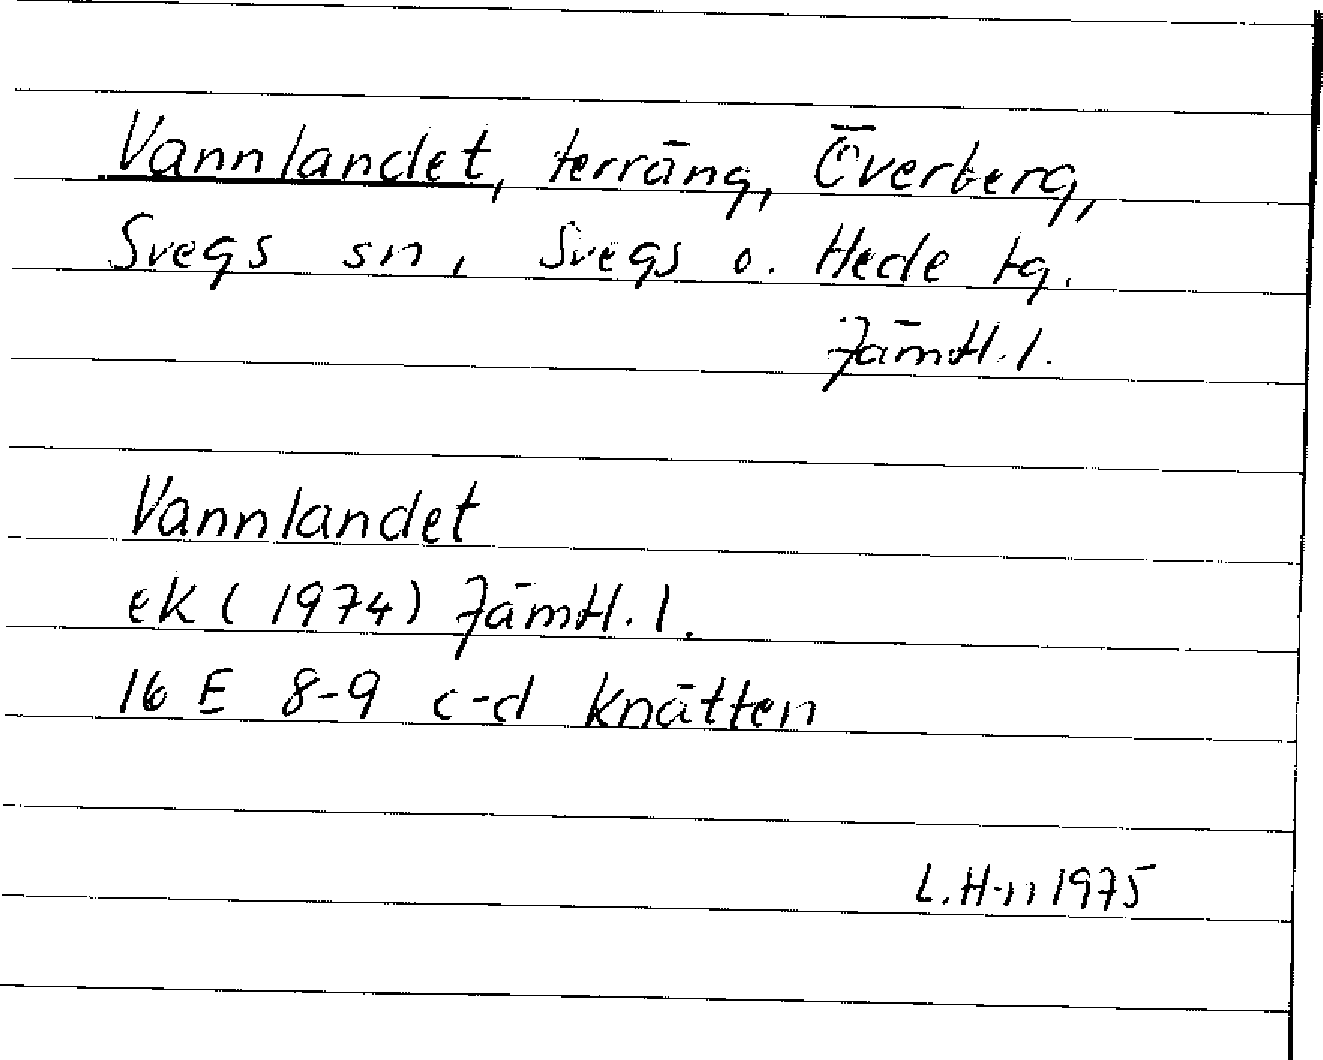 Vannlandet, terräng, Överberg,
Svegs sn, Svegs o. Hede tg.
Jämtl. l.
Vannlandet
ek (1974) Jämtl. l.
16 E 8-9 c-d Knätten
L. H-n 1975